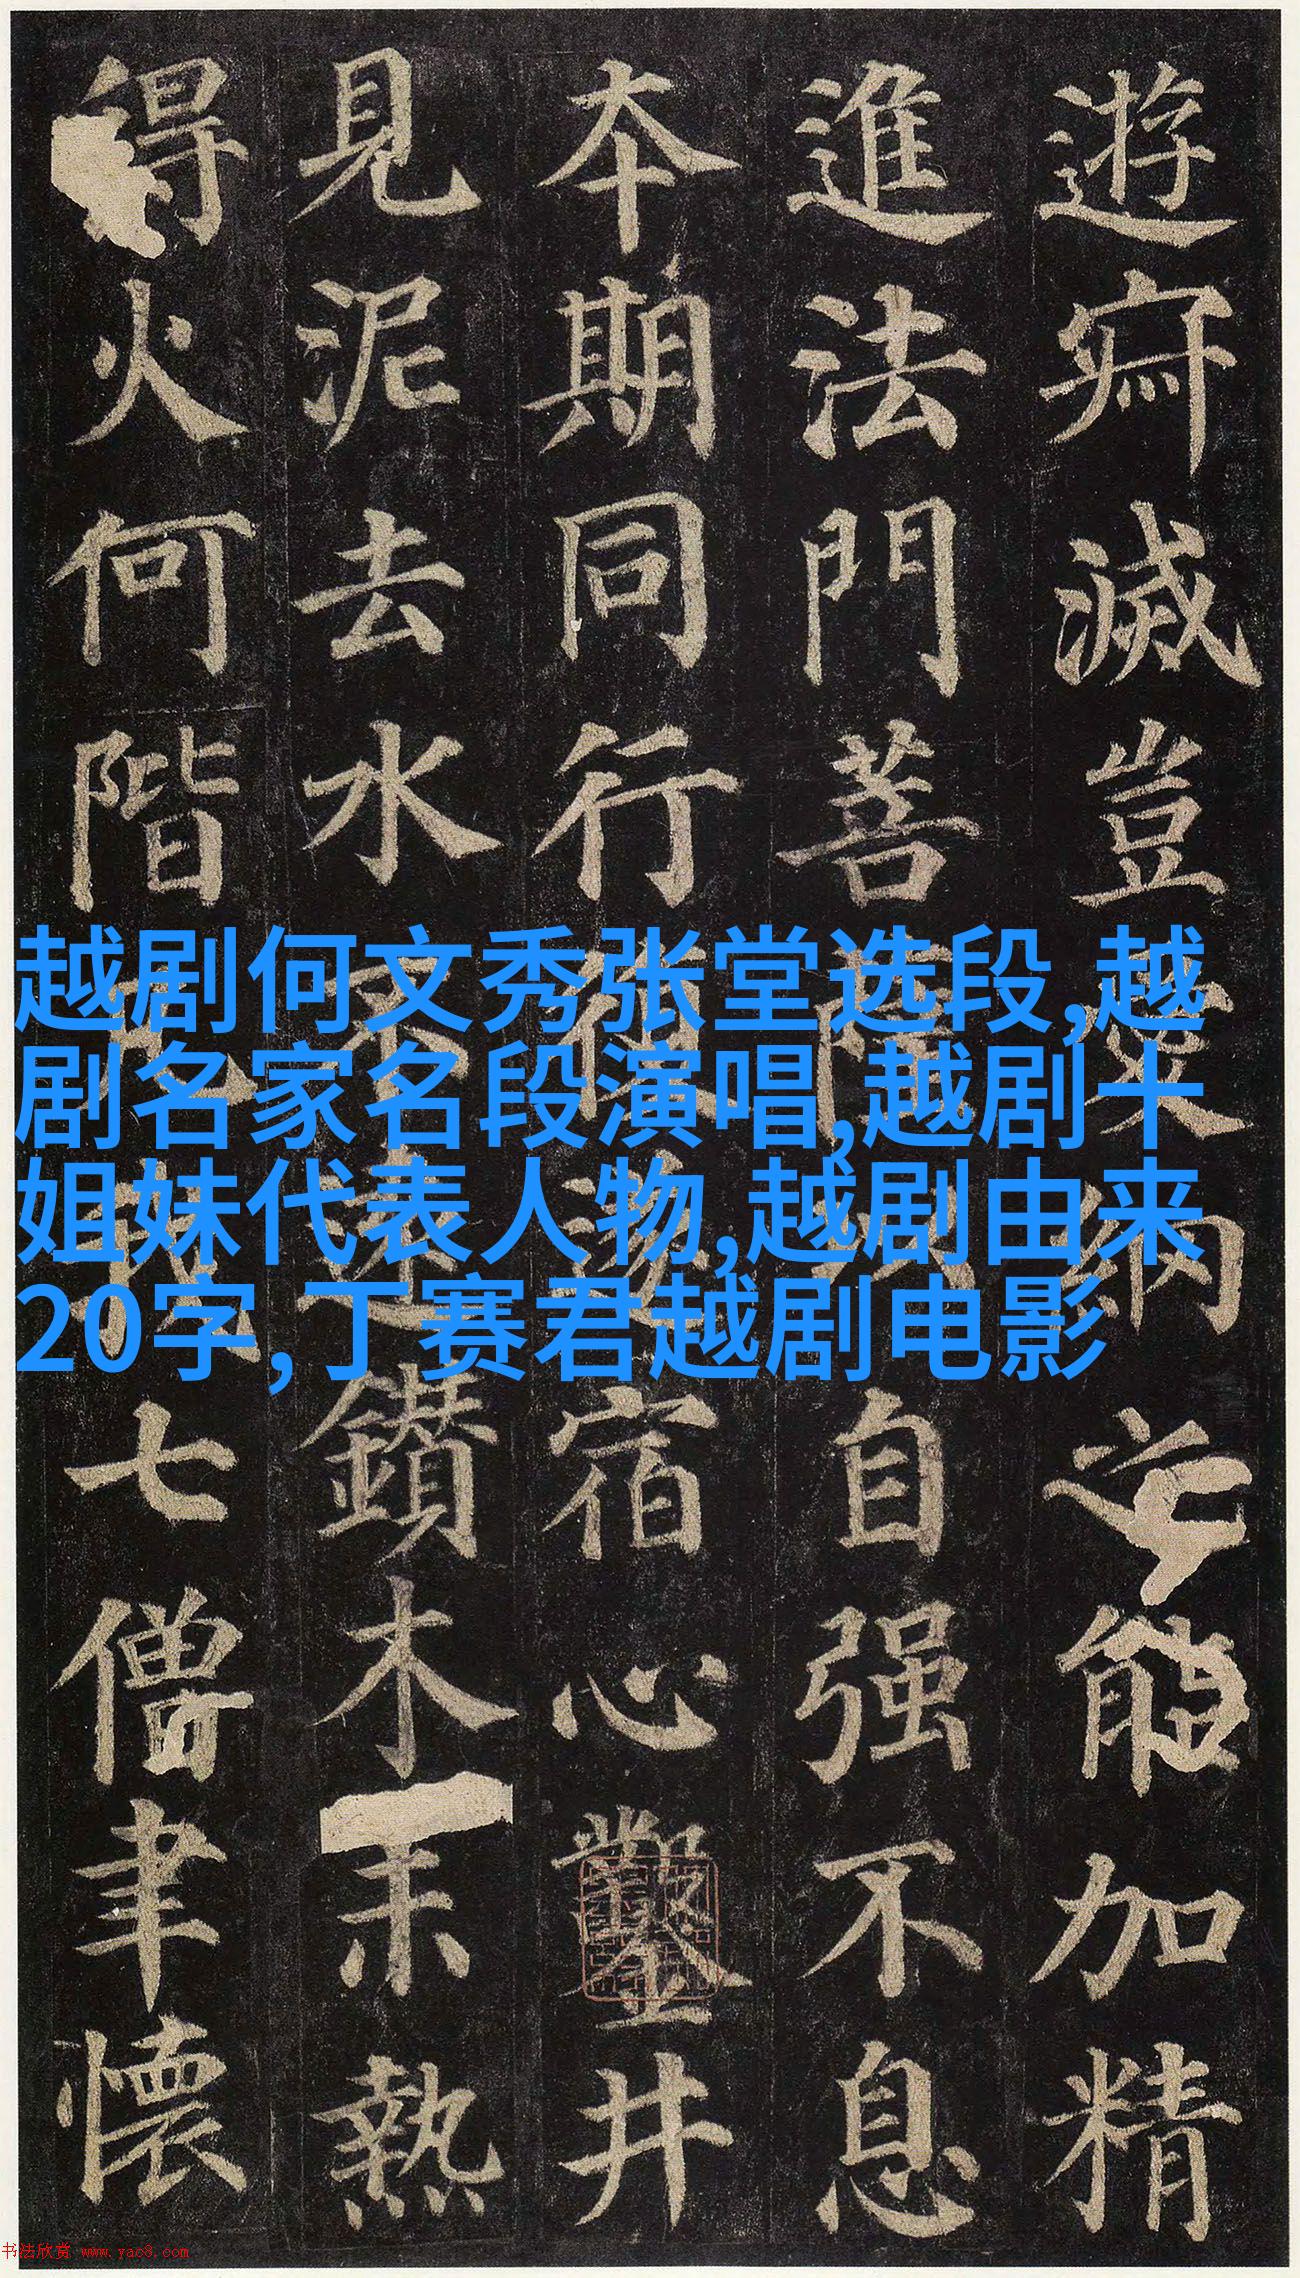 遊寂滅豈愛納之能加精
進法門菩薩以自强不息
本期同行復遂宿心鑿井
見泥去水不遠鑽木未熱
得火何階凡我七僧聿懷
越剧何文秀张堂选段,越
剧名家名段演唱,越剧十
姐妹代表人物,越剧由来
20字,丁赛君越剧电影
书法欣赏 www.yac8.com